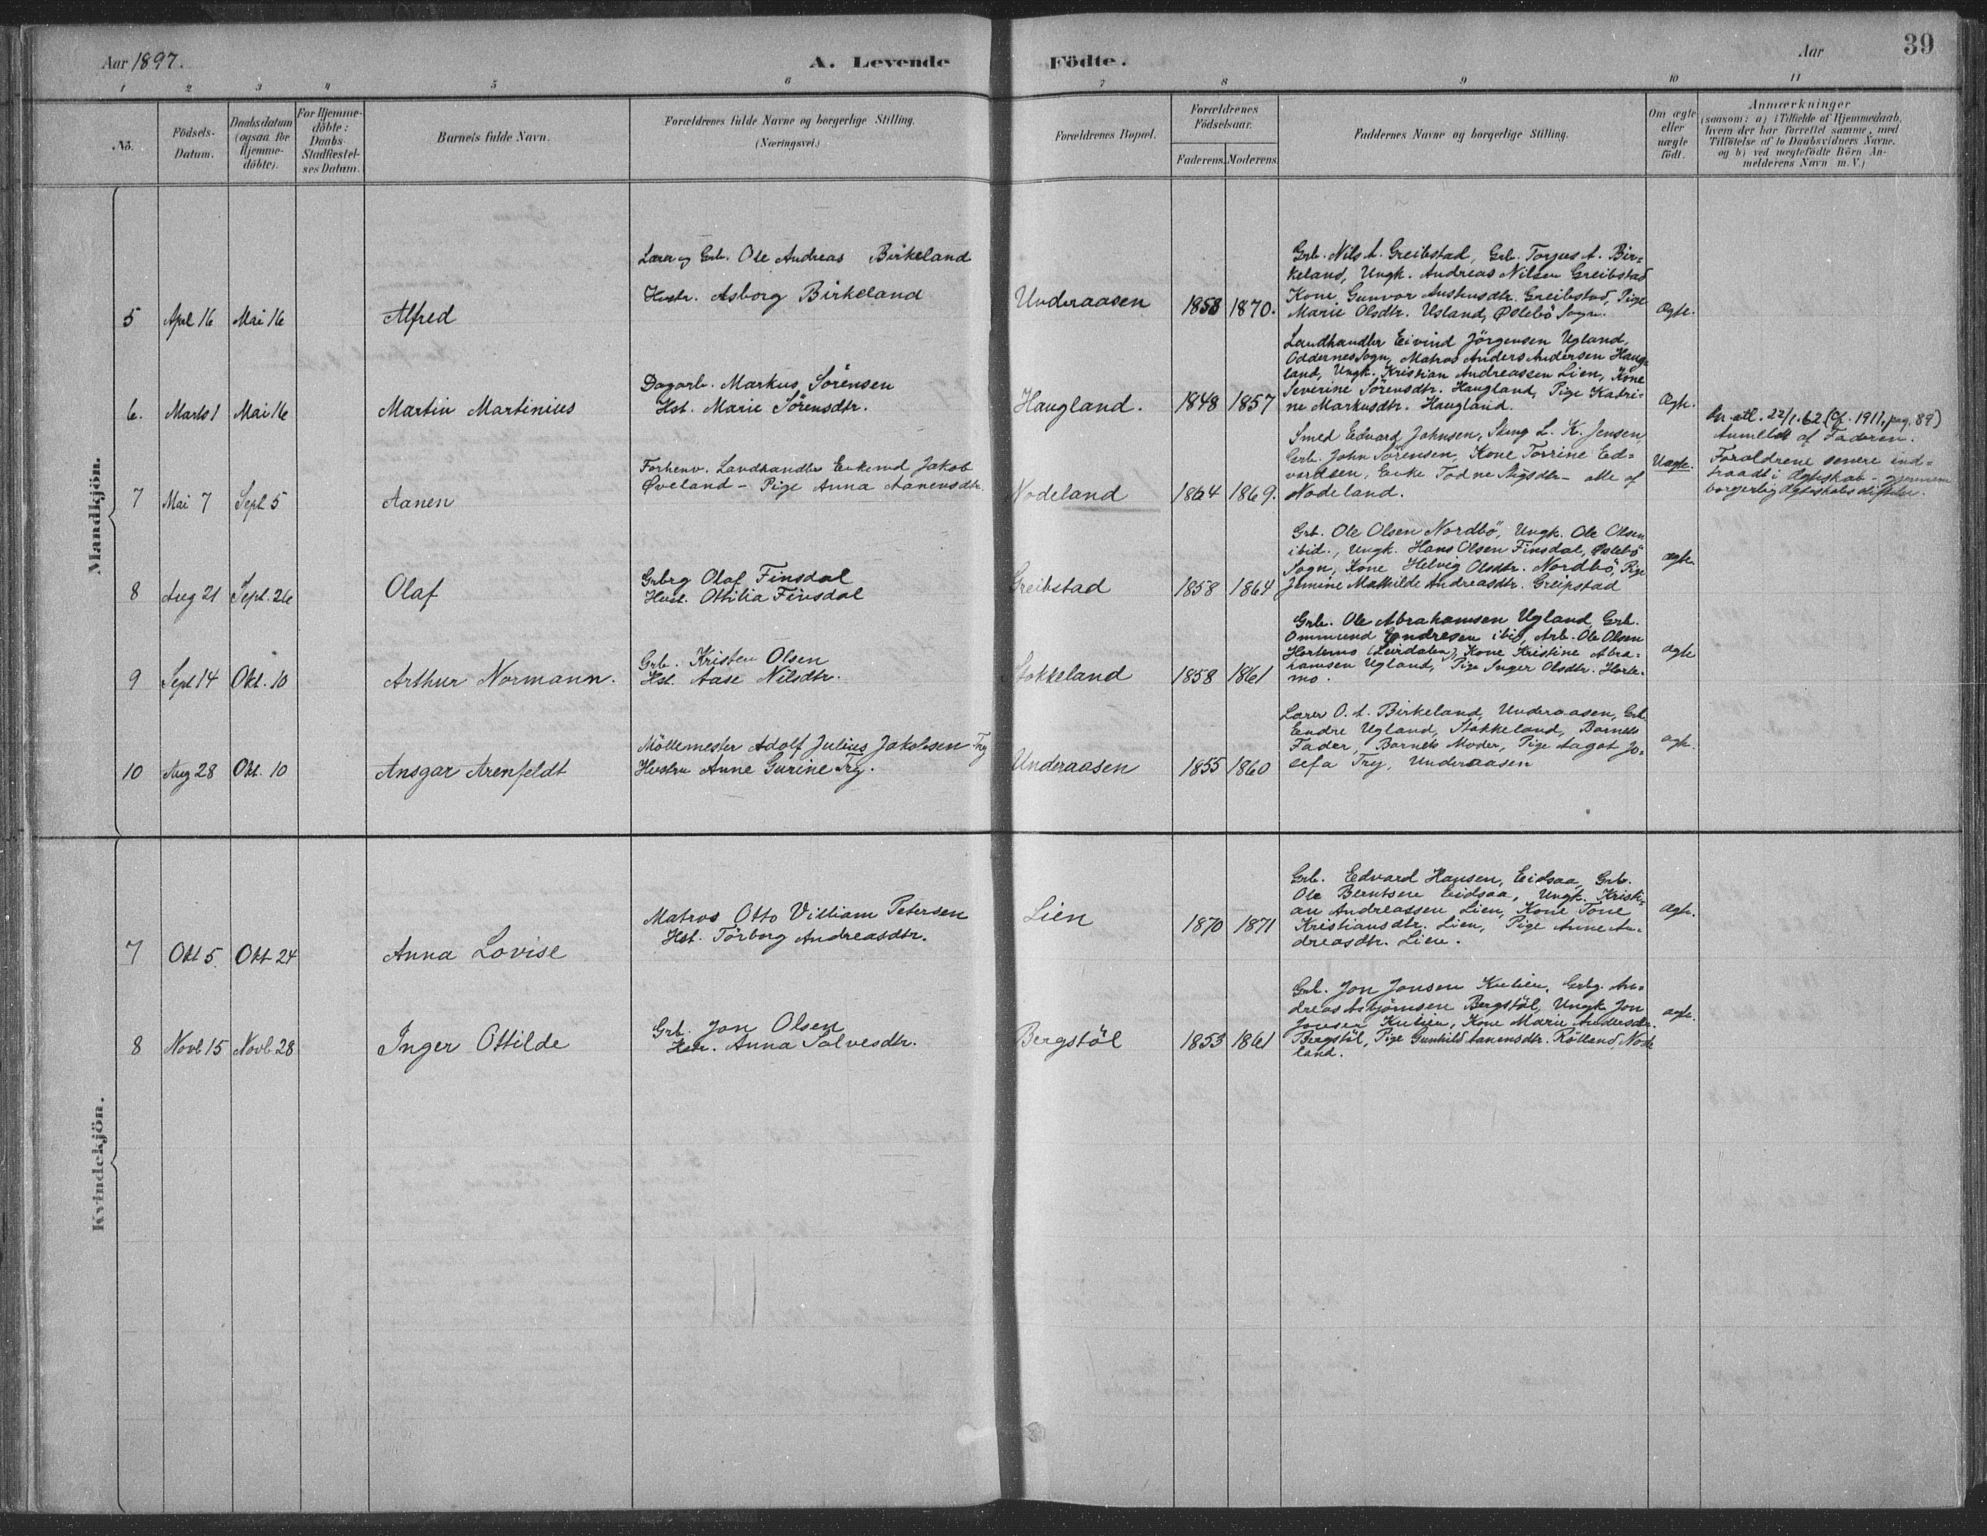 Aar 1897.
A. Levende Födte.
Aar
39
1 2 3 4 5 6 7 8 9 10 11
No.
Födsels-
Datum.
Daabsdatum
(ogsaa for
Hjemme-
döbte).
For Hjemme-
döbte:
Daabs-
Stadfæstel-
ses Datum.
Barnets fulde Navn.
Forældrenes fulde Navne og borgerlige Stilling.
(Næringsvei.)
Forældrenes Bopæl.
Forældrenes
Födselsaar.
Faderens. Moderens.
Faddernes Navne og borgerlige Stilling.
Om ægte
eller
uægte
födt.
Anmærkninger
(saasom: a) i Tilfælde af Hjemmedaab,
hvem der har forrettet samme, med
Tilföielse af to Daabsvidners Navne,
og b) ved uægtefödte Börn An-
melderens Navn m. V.)
Mandkjön.
5
Apl 16
Mai 16
Alfred
Lærer og Grb. Ole Andreas Birkeland
Hustr. Asborg Birkeland
Underaasen
1858 1870.
Grb. Nils A. Greibstad, Grb. Torjus A. Bir-
keland, Ungk. Andreas Nilsen Greibstad
Kone Gunvor Aushusdtr. Greibstad, Pige
Marie Olsdtr. Usland, Øslebö Sogn.
Ægte.
6.
Marts 1
Mai 16
Martin Martinius
Dagarb. Markus Sörensen
Hst. Marie Sörensdtr.
Haugland.
1848 1857
Landhandler Eivind Jörgensen Ugland,
Oddernes Sogn, Matros Anders Andersen Haug-
land, Ungk. Kristian Andreassen Lien, Kone
Severine Sörensdtr. Haugland, Pige Katri-
ne Markusdtr. Haugland.
Ægte.
7
Mai 7
Sept 5
Aanen
Forhenv. Landhandler Enkemd Jakob
Øveland – Pige Anna Aanensdtr.
Nodeland
1864 1869.
Smed Edvard Johnsen, L. K. Jensen
Grb. John Sörensen, Kone Torrine Ed-
vardsen, Enke Todne Stigsdtr – alle af
Nodeland.
Uægte.
22/1.62 (Cf. 1911, pag. 89)
Anmeldt af Faderen.
Forældrene senere ind-
traadt i Ægteskab – gjennem
borgerlig Ægteskabsstiftelse.
8
Aug 21
Sept. 26
Olaf
Grbrg Olaf Finsdal
Hust. Ottilia Finsdal
Greibstad
1858 1864
Grb. Ole Olsen Nordbö, Ungk. Ole Olsen
ibid., Ungk. Hans Olsen Finsdal, Øslebö
Sogn, Kone Helvig Olsdtr. Nordbö, Pige
Jemine Mathilde Andreasdtr. Greipstad
ægte
9
Sept 14
Okt. 10
Arthur Normann.
Grb. Kristen Olsen
Hst. Aase Nilsdtr.
Stokkeland
1858 1861
Grb. Ole Abrahamsen Ugland, Grb.
Ommund Endresen ibid, Arb. Ole Olsen
Hortemo (Leirdalen), Kone Kristine Abra-
hamsen Ugland, Pige Inger Olsdtr. Horte-
mo.
ægte
10
Aug 28
Okt. 10
Ansgar Arenfeldt
Möllemester Adolf Julius Jakobsen Try
Hustru Anne Gurine Try.
Underaasen
1855 1860
Lærer O. A. Birkeland, Underaasen, Grb.
Endre Ugland, Stokkeland, Barnets
Fader, Barnets Moder, Pige Aagot Jo-
sefa Try, Underaasen
ægte.
Kvindekjön.
7
Okt 5
Okt 24
Anna Lovise
Matros Otto Villiam Petersen
Hst. Törborg Andreasdtr.
Lien
1870 1871
Grb. Edvard Hansen, Eidsaa, Grb.
Ole Berntsen Eidsaa, Ungk. Kristi-
an Andreassen Lien, Kone Tone
Kristiansdtr. Lien, Pige Anne An-
dreasdtr. Lien.
ægte.
8
Novb 15
Novb. 28
Inger Ottilde
Grb. Jon Olsen
Hstr. Anna Salvesdtr.
Bergstöl
1853 1861
Grb. Jon Jonsen Kulien, Grbg. An-
dreas Asbjörnsen Bergstöl, Ungk Jon
Jonsen Kulien, Kone Marie Andersdtr.
Bergstöl, Pige Gunhild Aanensdtr. Rölland, Node-
land.
ægte.